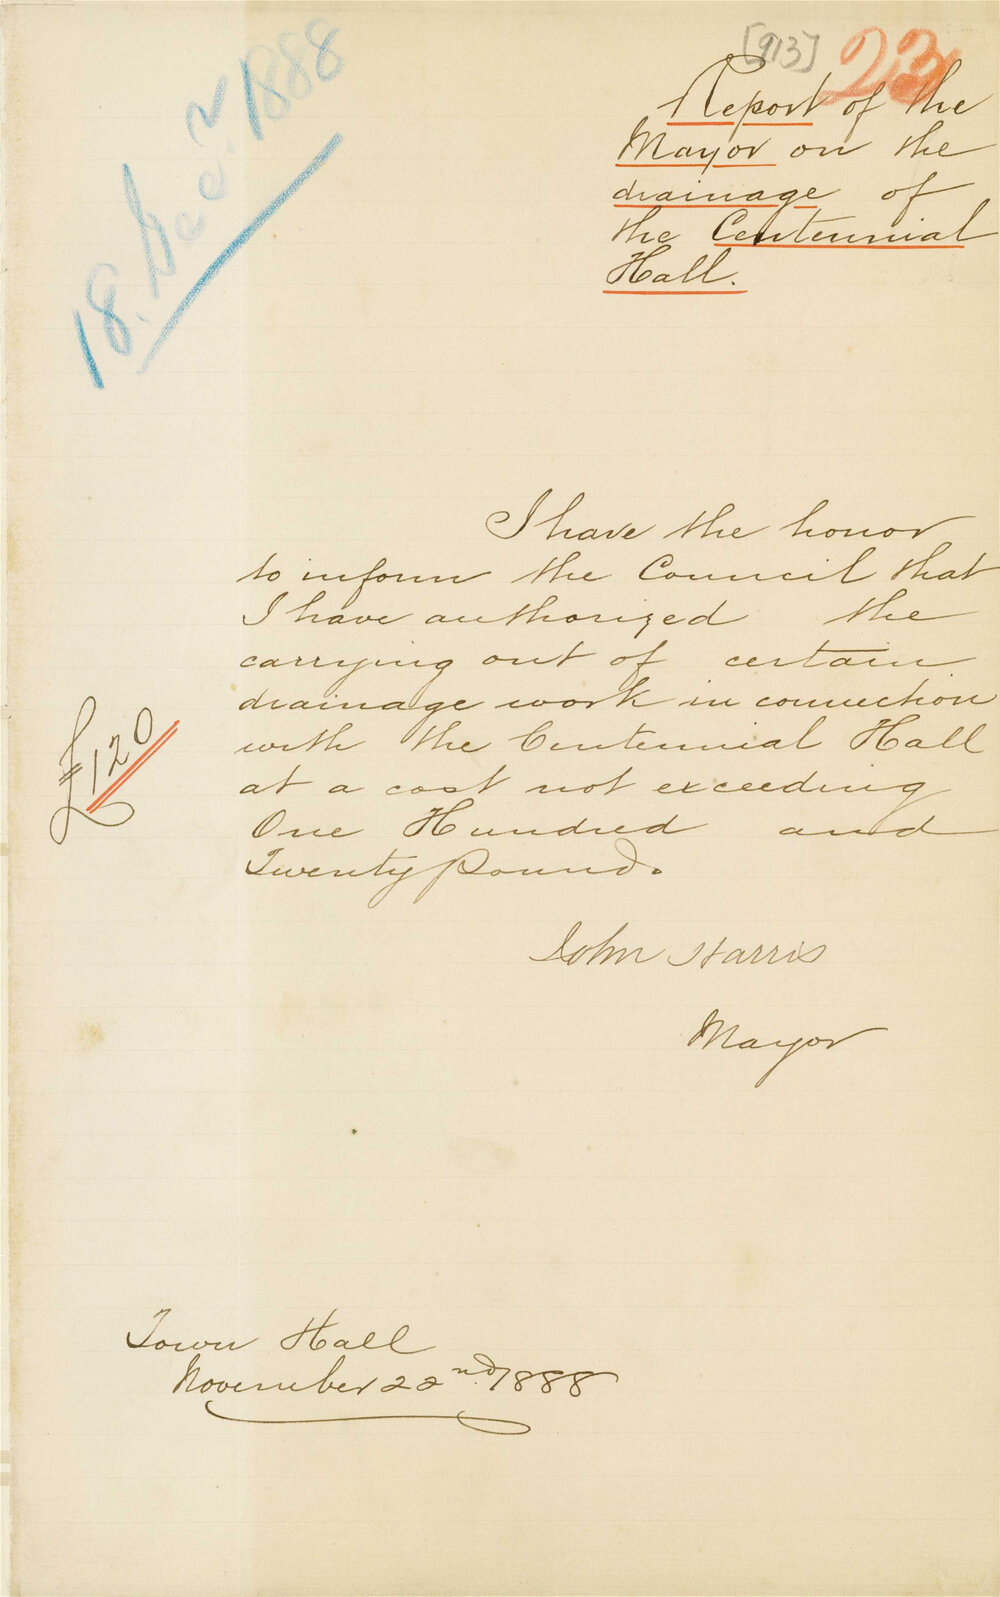 [913] 23
18. Decr. 1888
Report of the
Mayor on the
drainage of
the Centennial
Hall.
I have the honor
to inform the Council that
I have authorized the
carrying out of certain
drainage work in connection
with the Centennial Hall
£120
at a cost not exceeding
One Hundred and
Twenty Pounds.
John Harris
Mayor
Town Hall
November 22nd 1888